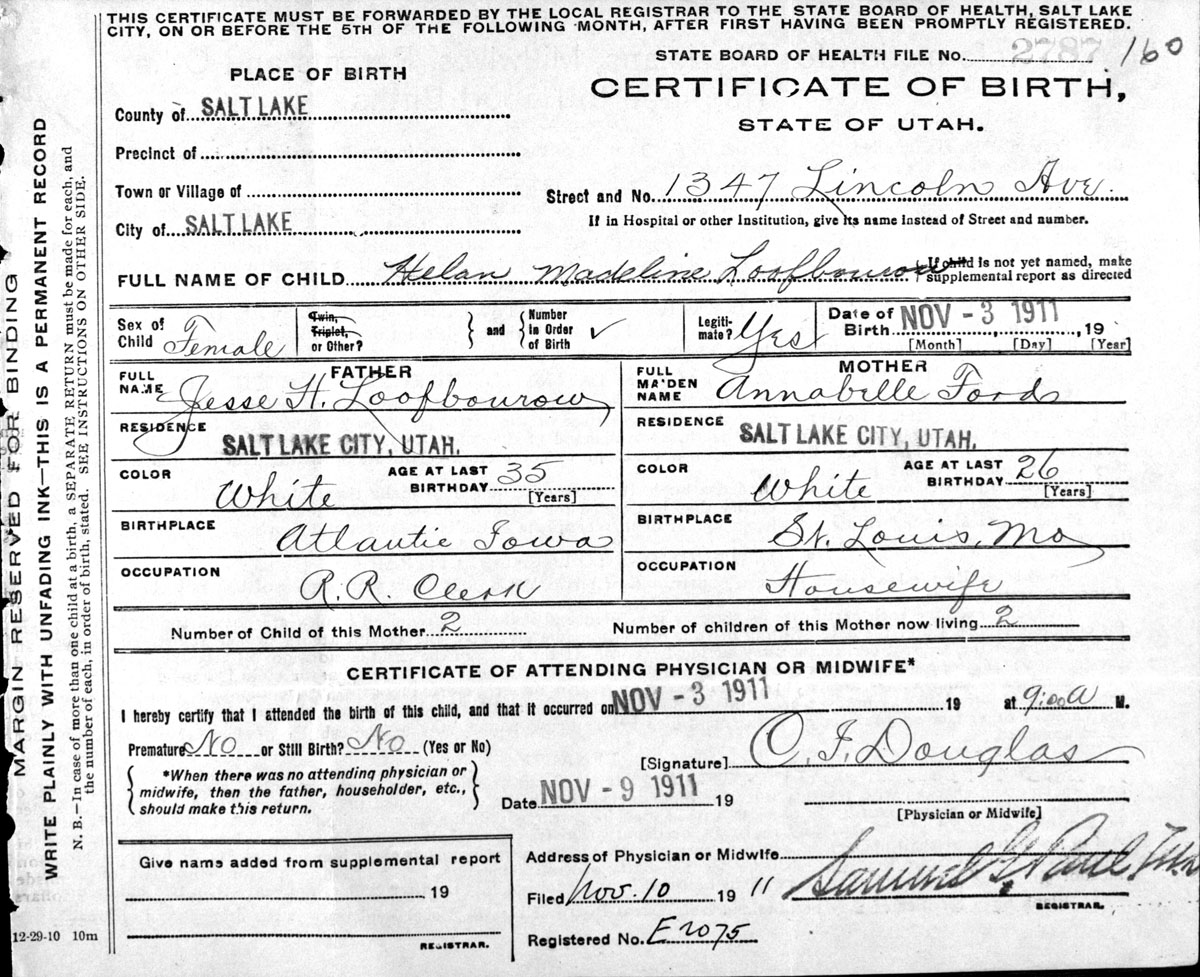 THIS CERTIFICATE MUST BE FORWARDED BY THE LOCAL REGISTRAR TO THE STATE BOARD OF HEALTH, SALT LAKE
CITY, ON OR BEFORE THE 5TH OF THE FOLLOWING MONTH, AFTER FIRST HAVING BEEN PROMPTLY REGISTERED.
STATE BOARD OF HEALTH FILE No. 2787 160
PLACE OF BIRTH
CERTIFICATE OF BIRTH,
STATE OF UTAH.
County of SALT LAKE
Precinct of
Town or Village of
Street and No. 1347 Lincoln Ave.
City of SALT LAKE
If in Hospital or other Institution, give its name instead of Street and number.
FULL NAME OF CHILD Helan Madeline Loofbourow
If child is not yet named, make
supplemental report as directed
Sex of Child Female
Twin, Triplet, or Other?
and
Number in Order of Birth ✓
Legitimate? Yes
Date of Birth NOV - 3 1911, 19
[Month] [Day] [Year]
FATHER
FULL NAME Jesse H. Loofbourow
MOTHER
FULL MAIDEN NAME Annabelle Ford
RESIDENCE SALT LAKE CITY, UTAH.
RESIDENCE SALT LAKE CITY, UTAH.
COLOR White AGE AT LAST BIRTHDAY 35 [Years]
COLOR White AGE AT LAST BIRTHDAY 26 [Years]
BIRTHPLACE Atlantic Iowa
BIRTHPLACE St. Louis, Mo
OCCUPATION R.R. Clerk
OCCUPATION Housewife
Number of Child of this Mother 2
Number of children of this Mother now living 2
CERTIFICATE OF ATTENDING PHYSICIAN OR MIDWIFE*
I hereby certify that I attended the birth of this child, and that it occurred on NOV - 3 1911 19 at 9:00 a M.
Premature No or Still Birth? No (Yes or No)
[Signature] O. J. Douglas
*When there was no attending physician or
midwife, then the father, householder, etc.,
should make this return.
Date NOV - 9 1911 19
[Physician or Midwife]
Give name added from supplemental report
19
REGISTRAR.
Address of Physician or Midwife
Filed Nov. 10 19 11 Samuel G. Paul
REGISTRAR.
Registered No. E2075
12-29-10 10m
MARGIN RESERVED FOR BINDING
WRITE PLAINLY WITH UNFADING INK—THIS IS A PERMANENT RECORD
N. B.—In case of more than one child at a birth, a SEPARATE RETURN must be made for each, and
the number of each, in order of birth, stated. SEE INSTRUCTIONS ON OTHER SIDE.